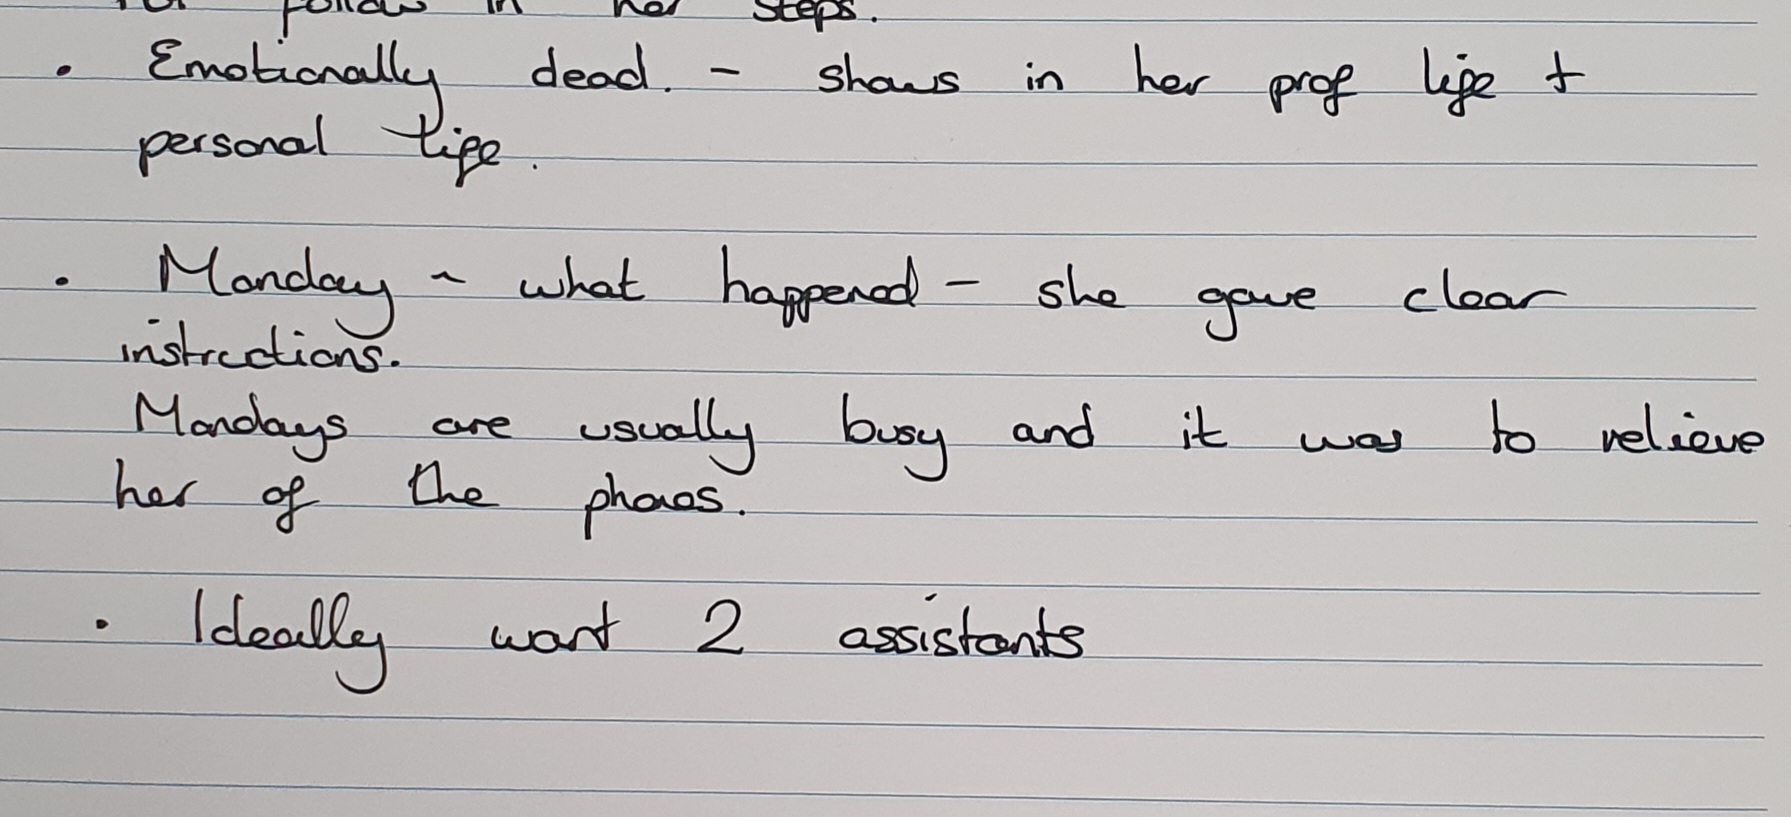 follow in her steps.
• Emotionally dead. - shows in her prof life +
personal life.
• Monday - what happened - she gave clear
instructions.
Mondays are usually busy and it was to relieve
her of the phones.
• Ideally want 2 assistants